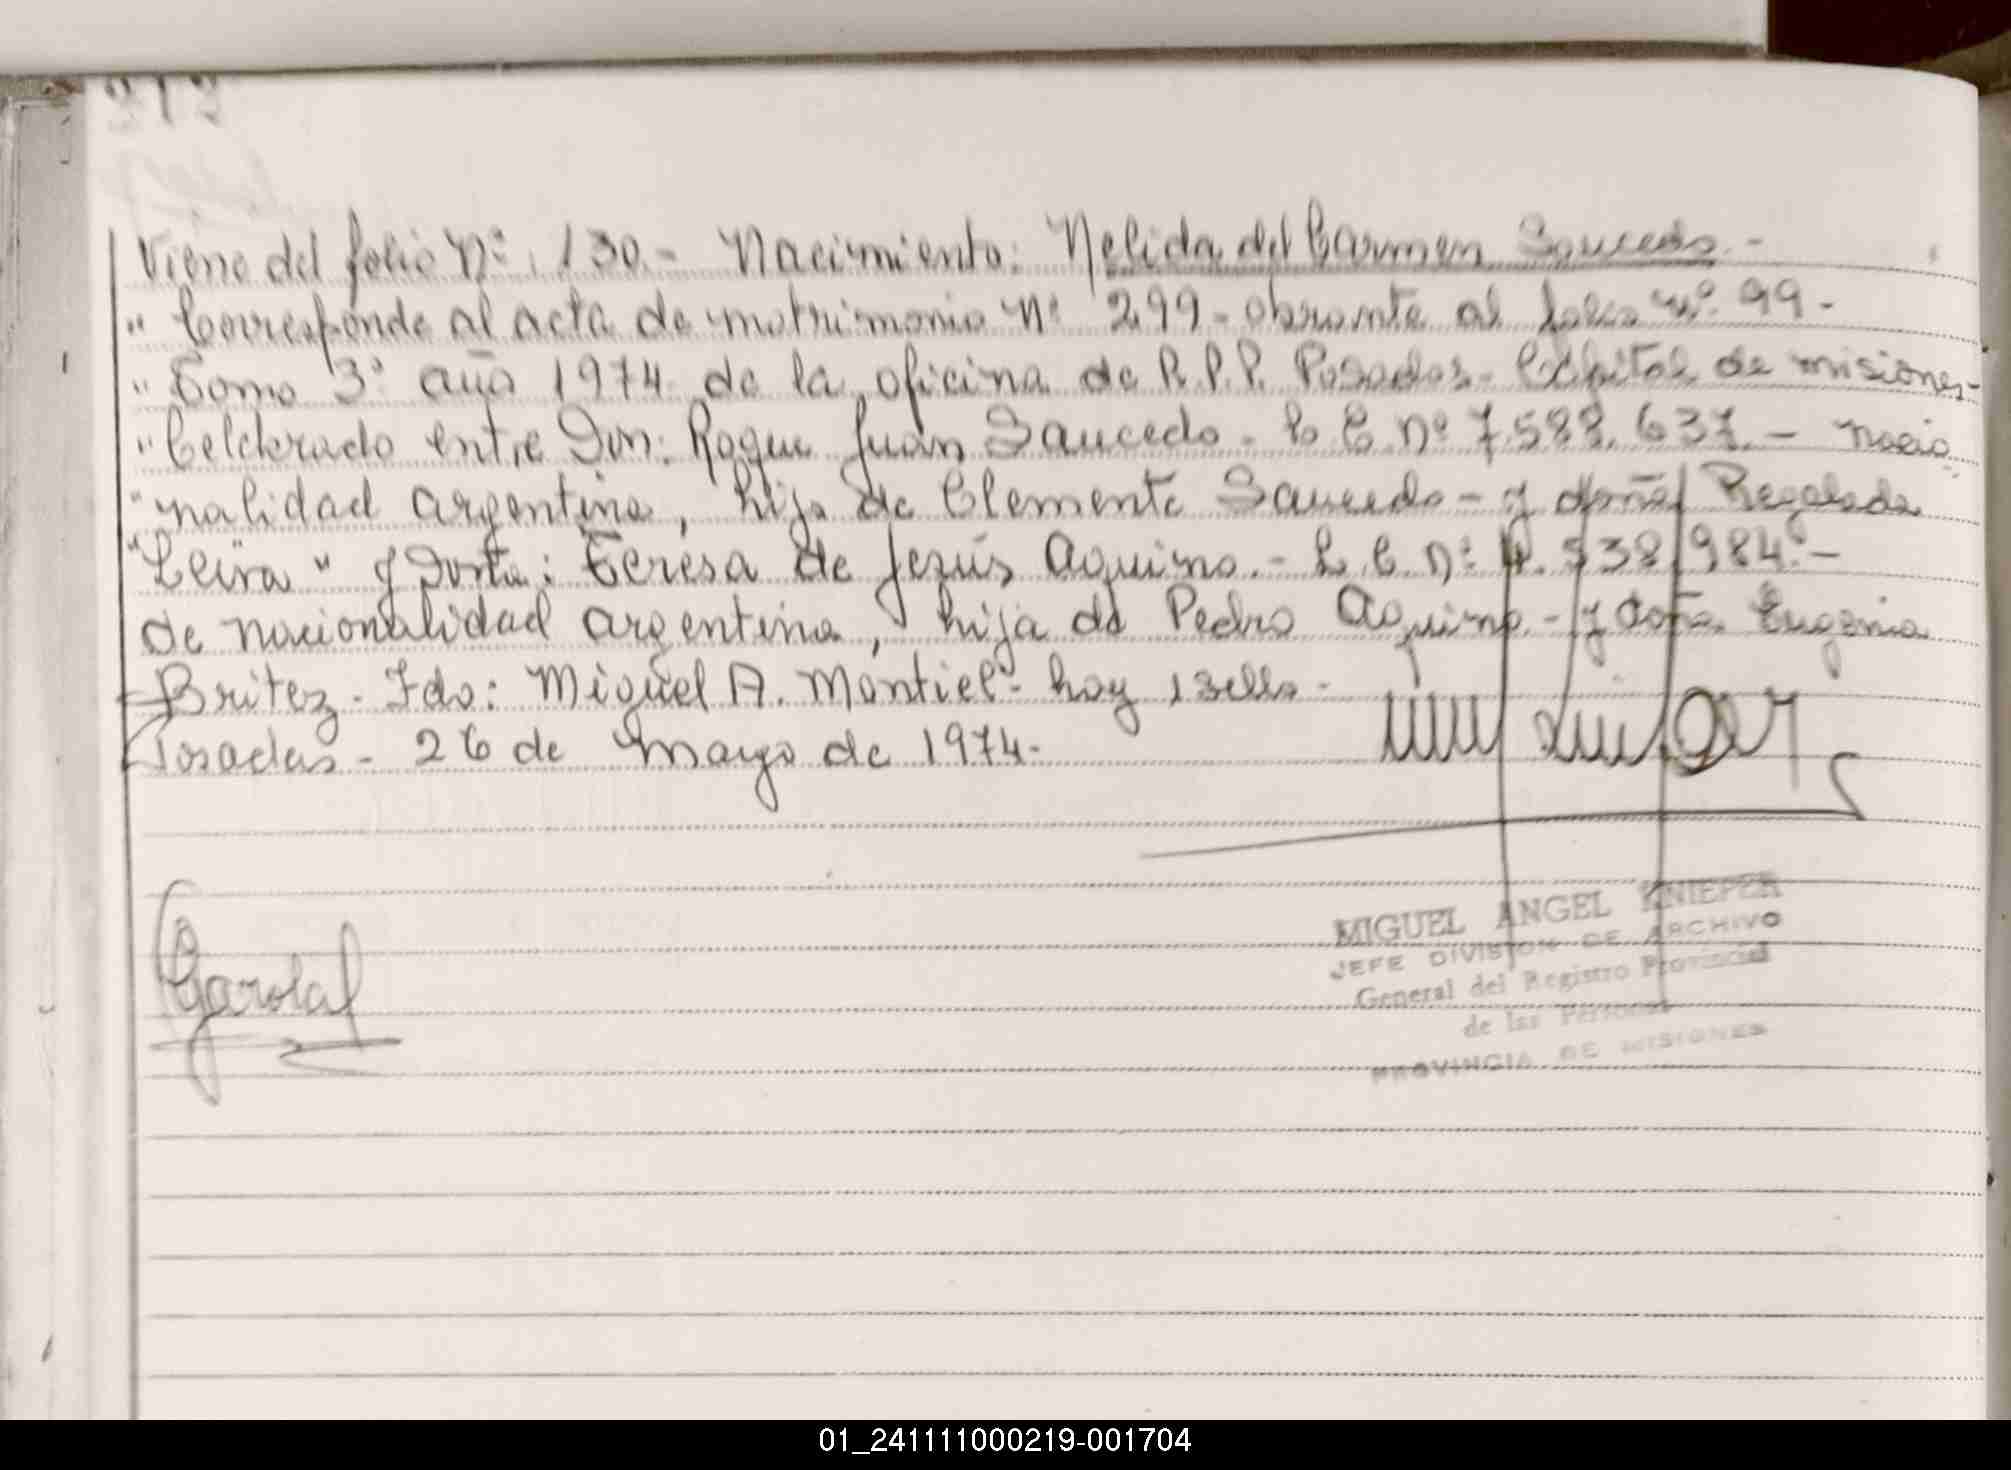 Viene del folio Nº 130.- Nacimiento: Nelida del Carmen Saucedo.-
" Corresponde al acta de matrimonio Nº 299- obrante al folio Nº 99-
" Tomo 3º año 1974 de la oficina de R.P.P. Posadas- Capital de misiones-
" Celebrado entre Don: Roque Juan Saucedo- L E Nº 7.588.637.- nacio
" nalidad argentina, hijo de Clemente Saucedo- y doña Regalada
" y Doña: Teresa de Jesús Aquino.- L.C. Nº 4.538.984.-
de nacionalidad argentina, hija de Pedro Aquino.- y doña Eugenia
Britez. Fdo: Miguel A. Montiel- hay 1 sello-
Posadas- 26 de mayo de 1974-
MIGUEL ANGEL KNIEPER
JEFE DIVISION DE ARCHIVO
General del Registro Provincial
de las Personas
PROVINCIA DE MISIONES
01_241111000219-001704